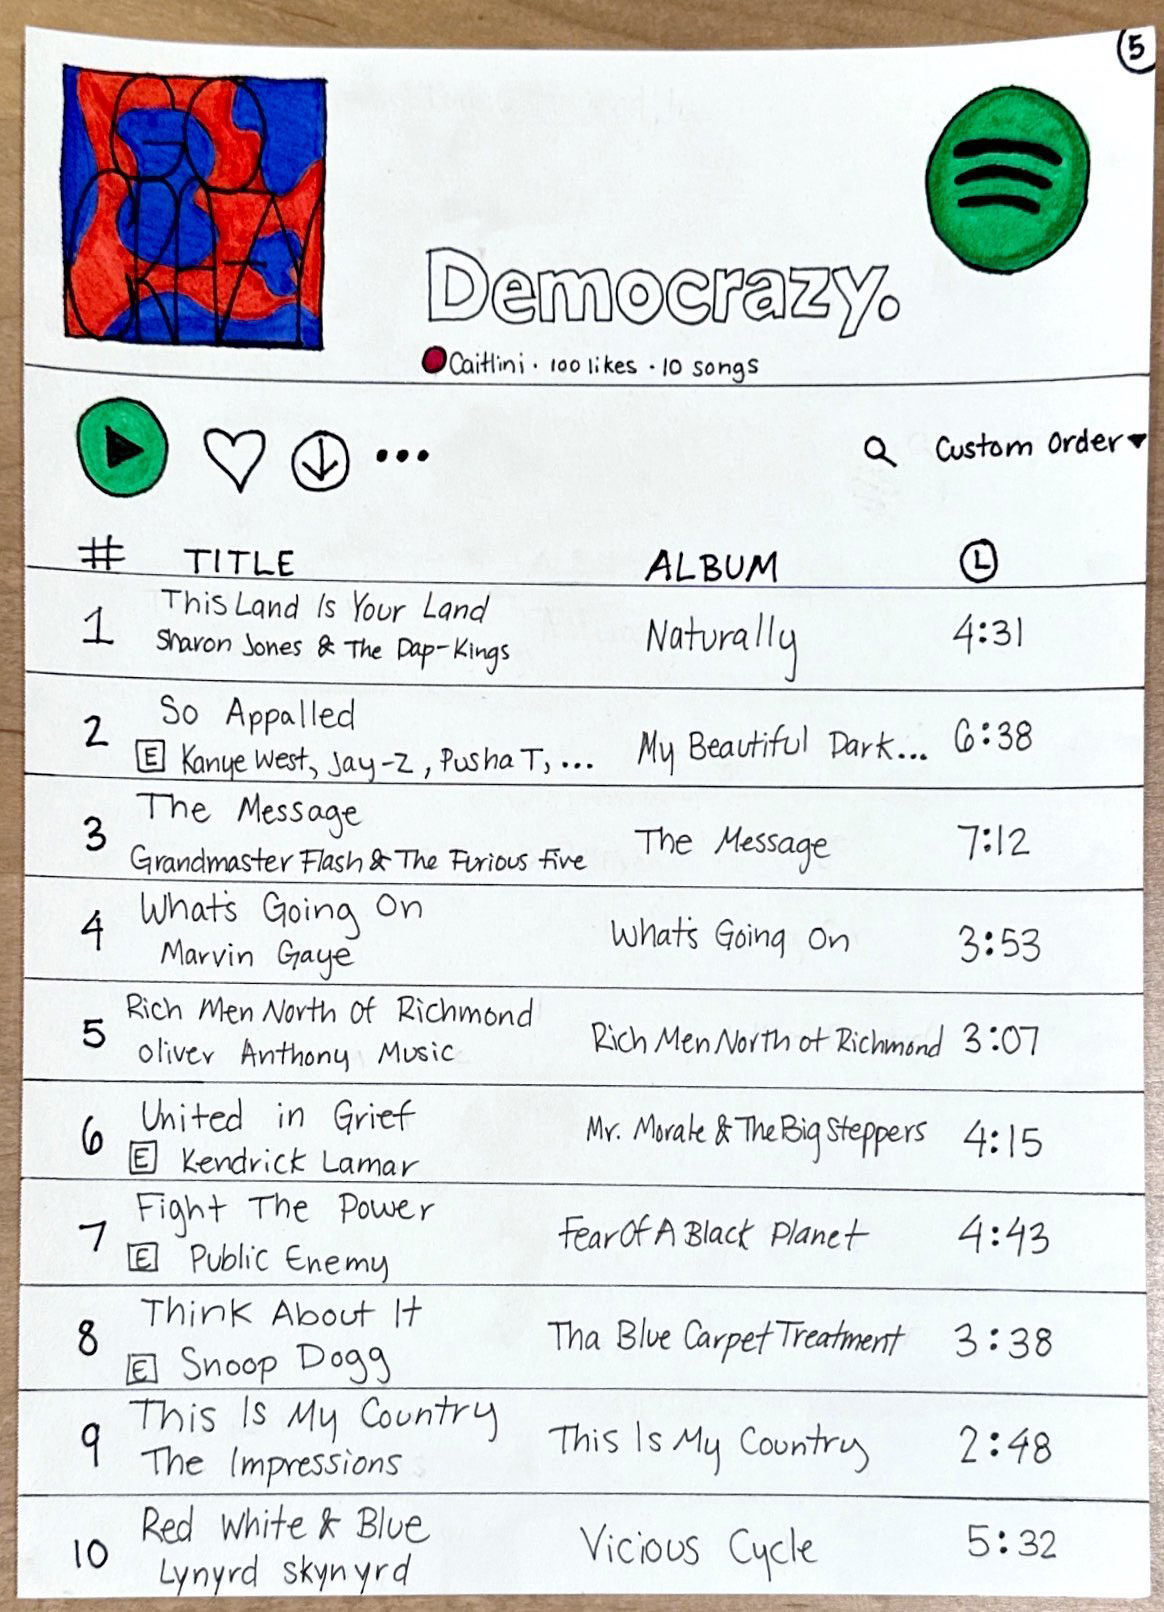 5
GO
CRAZY
Democrazy.
Caitlini · 100 likes · 10 songs
Custom Order
# TITLE ALBUM
1 This Land Is Your Land Naturally 4:31
Sharon Jones & The Dap-Kings
2 So Appalled My Beautiful Dark... 6:38
E Kanye West, Jay-Z, Pusha T, ...
3 The Message The Message 7:12
Grandmaster Flash & The Furious Five
4 What's Going On What's Going On 3:53
Marvin Gaye
5 Rich Men North Of Richmond Rich Men North of Richmond 3:07
Oliver Anthony Music
6 United in Grief Mr. Morale & The Big Steppers 4:15
E Kendrick Lamar
7 Fight The Power Fear Of A Black Planet 4:43
E Public Enemy
8 Think About It Tha Blue Carpet Treatment 3:38
E Snoop Dogg
9 This Is My Country This Is My Country 2:48
The Impressions
10 Red White & Blue Vicious Cycle 5:32
Lynyrd Skynyrd